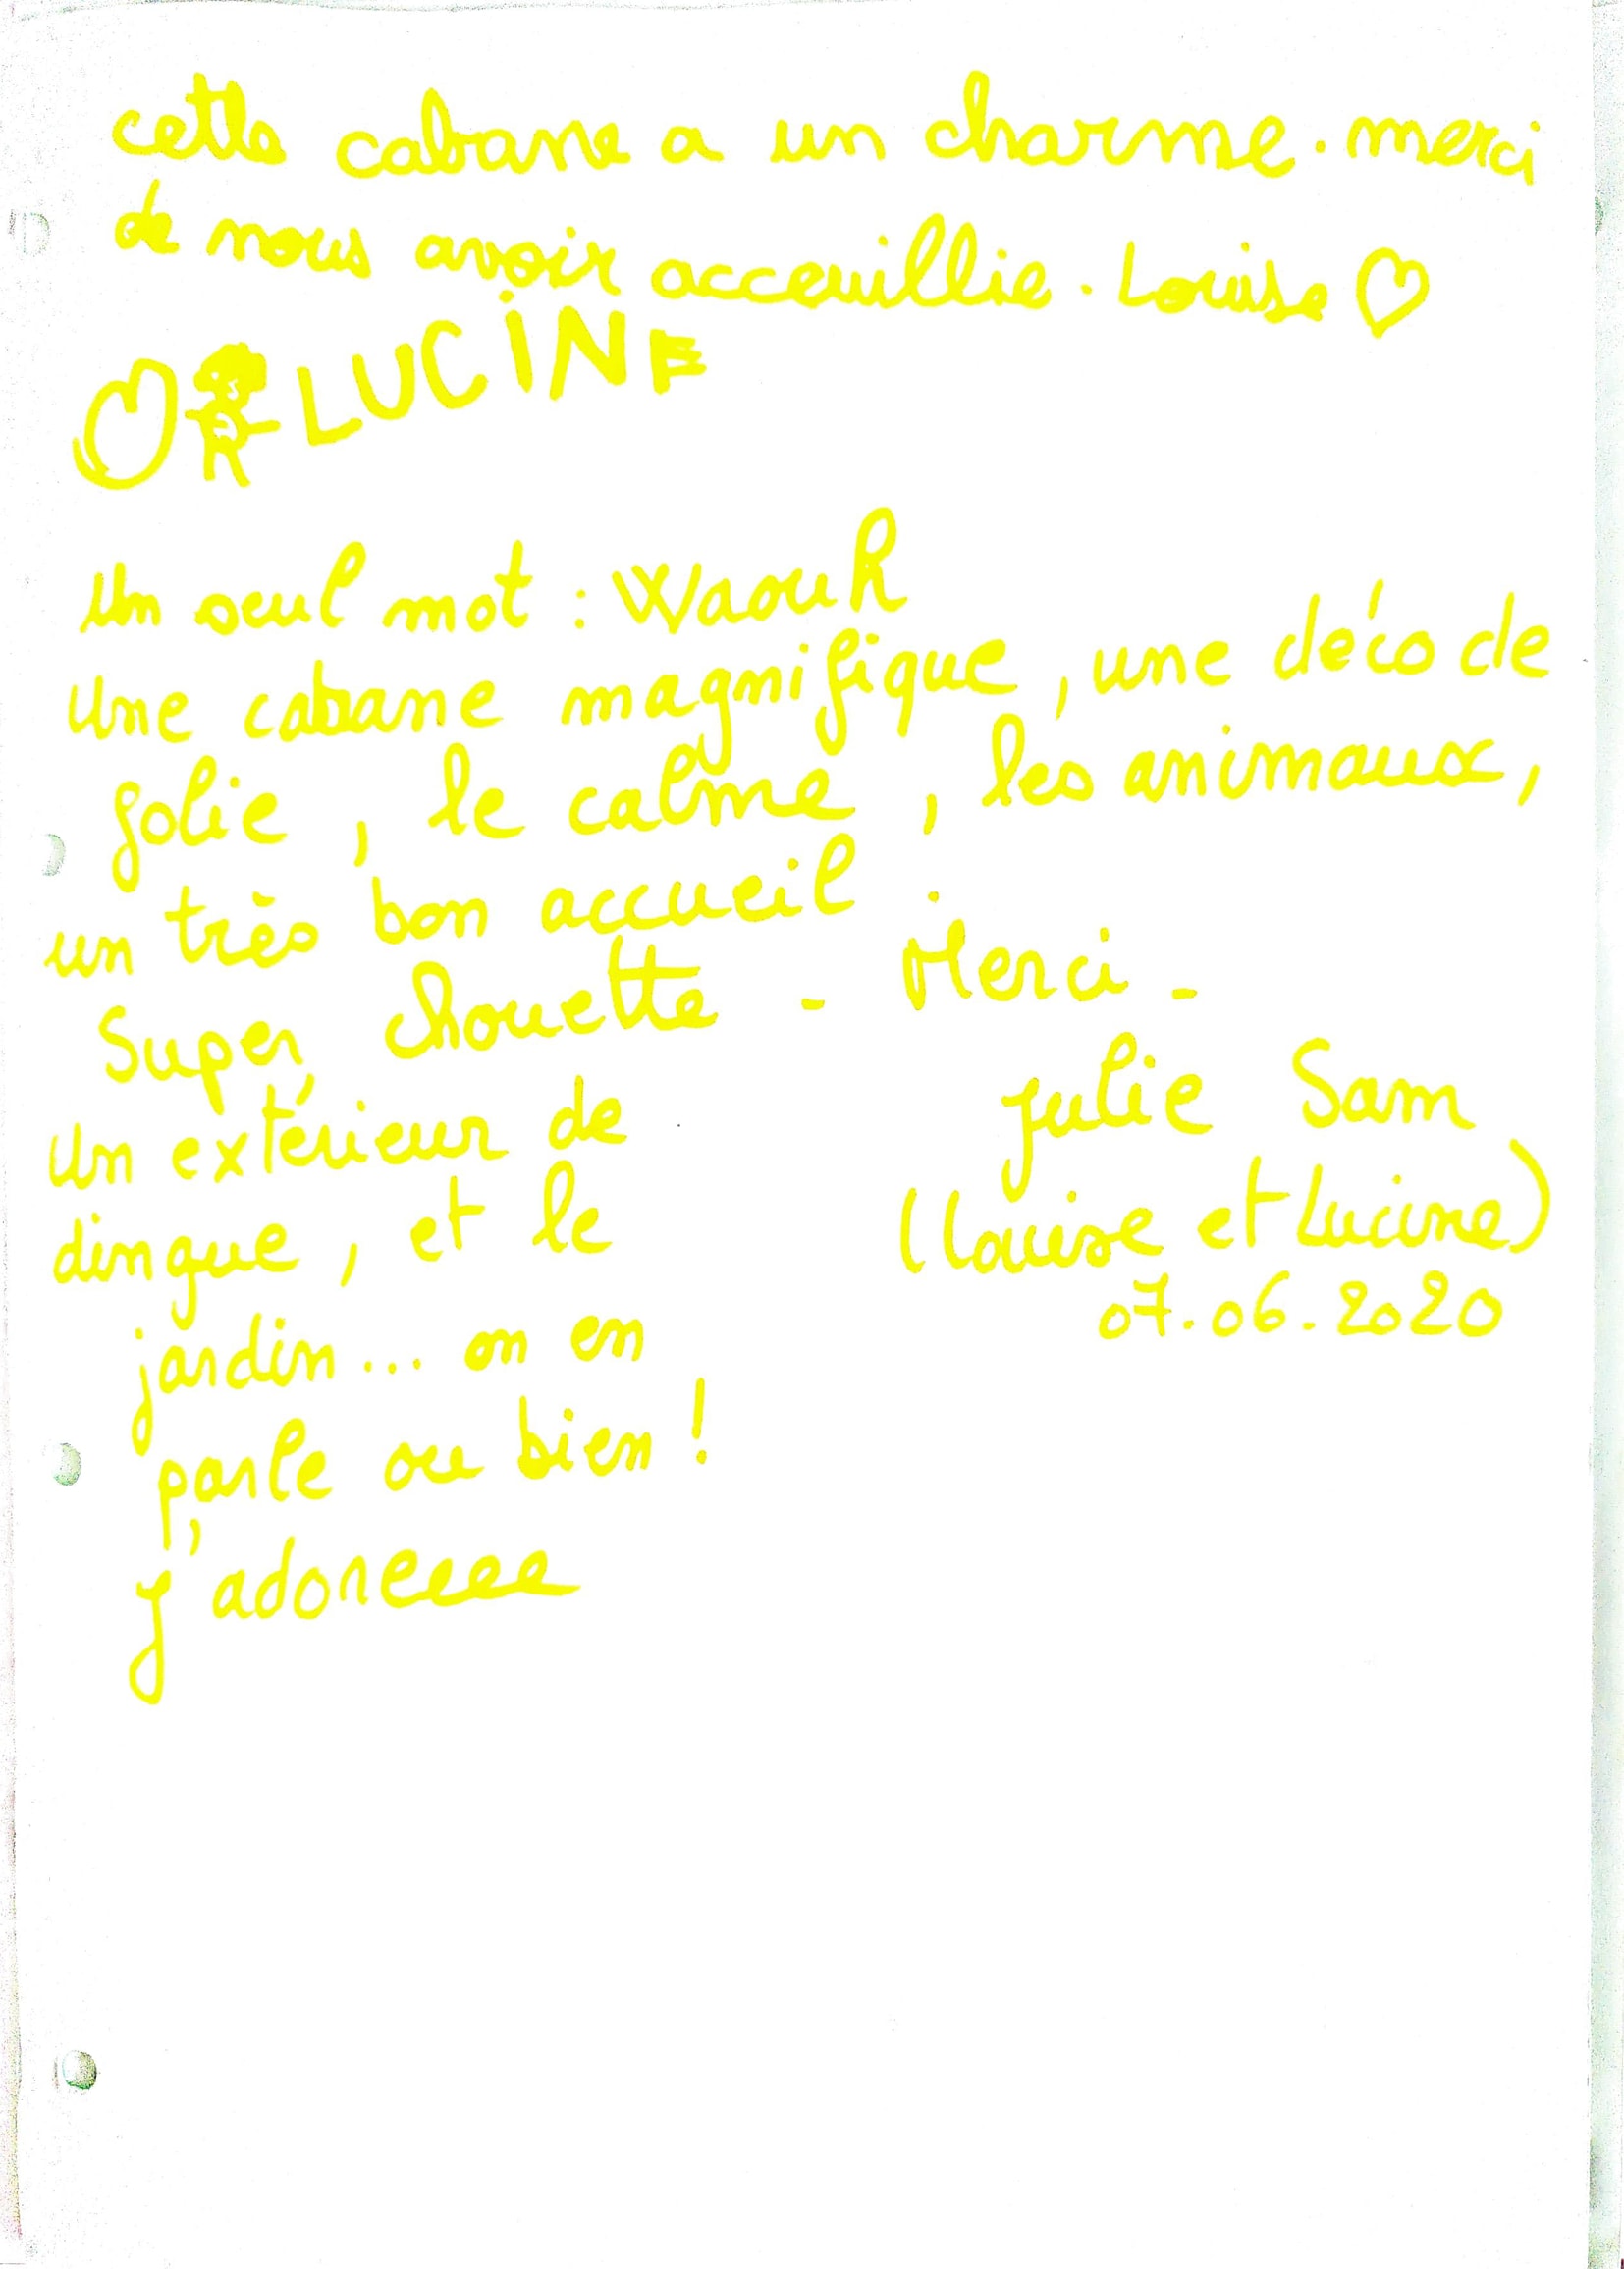 cette cabane a un charme. merci
de nous avoir acceuillie. Louise ♡
LUCINE
Un seul mot : Waouh
Une cabane magnifique, une déco de
folie, le calme, les animaux,
un très bon accueil.
Super chouette - Merci -
Un extérieur de
dingue, et le
jardin... on en
parle ou bien !
J'adoreeee
Julie Sam
(Louise et Lucine)
07.06.2020